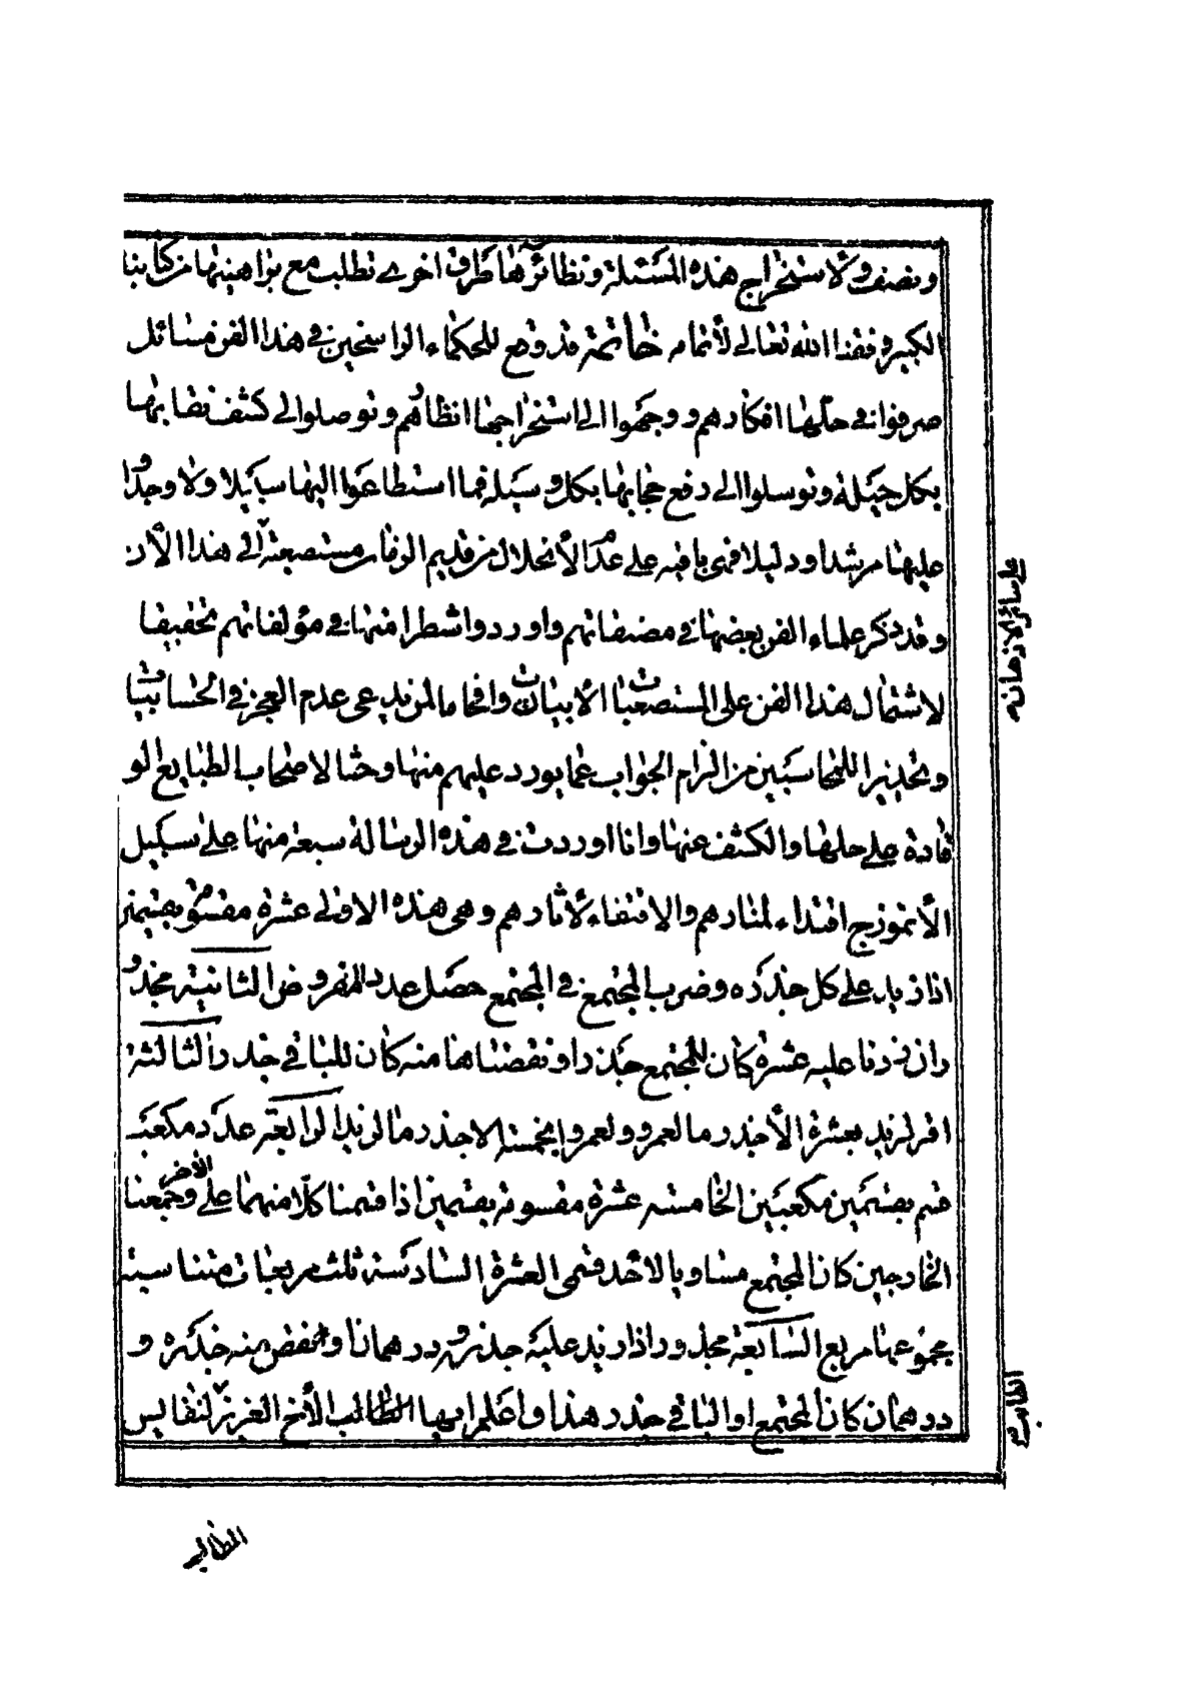 ونصف ولاستخراج هذه المسئلة ونظائرها طرق اخرى تطلب مع براهينها من كتابنا
الكبير وفقنا الله تعالى لأتمامه خاتمة قد وقع للحكماء الراسخين في هذا الفن مسائل
صرفوا في حلها افكارهم ووجهوا الى استخراجها انظارهم وتوصلوا الى كشف نقابها
بكل حيلة وتوسلوا الى دفع حجابها بكل وسيلة فما استطاعوا اليها سبيلا ولا وجدوا
عليها مرشدا ودليلا فهي باقية على عدم الأنحلال من قديم الزمان مستصعبة الى هذا الأن
وقد ذكر علماء الفن بعضها في مصنفاتهم واوردوا شطرا منها في مؤلفاتهم تحقيقا
لاشتمال هذا الفن على المستصعبات الأبيات وافحاما لمن يدعى عدم العجز في الحسابيات
وتحذيرا للمحاسبين من التزام الجواب عما يورد عليهم منها وحثا لاصحاب الطبايع الو
قادة على حلها والكشف عنها وانا اوردت في هذه الرسالة سبعة منها على سبيل
الأنموذج اقتداء لمنارهم والاقتفاء لأثارهم وهى هذه الاولى عشرة مقسومة بقسمين
اذا زيد على كل جذره وضرب المجتمع في المجتمع حصل عدد المفروض الثانية مجذو
ر ان زدنا عليه عشرة كان للمجتمع جذرا ونقصناها منه كان للباقي جذر الثالثة
اقر لزيد بعشرة الأجذر ما لعمرو ولعمرو بخمسة الاجذر ما لزيد الرابعة عدد مكعب
قسم بقسمين مكعبين الخامسة عشرة مقسومة بقسمين اذا قسمنا كلا منهما على الأخر وجمعنا
الخارجين كان المجتمع مساويا لأحد قسمى العشرة السادسة ثلث مربعات متناسبة
مجموعها مربع السابعة مجذور اذا زيد عليه جذره ودرهمان او نقص منه جذره و
درهمان كان المجتمع او الباقي جذر هذا واعلم ايها الطالب الأخ العزيز لنفايس
المطالب
على سائر الاذهان